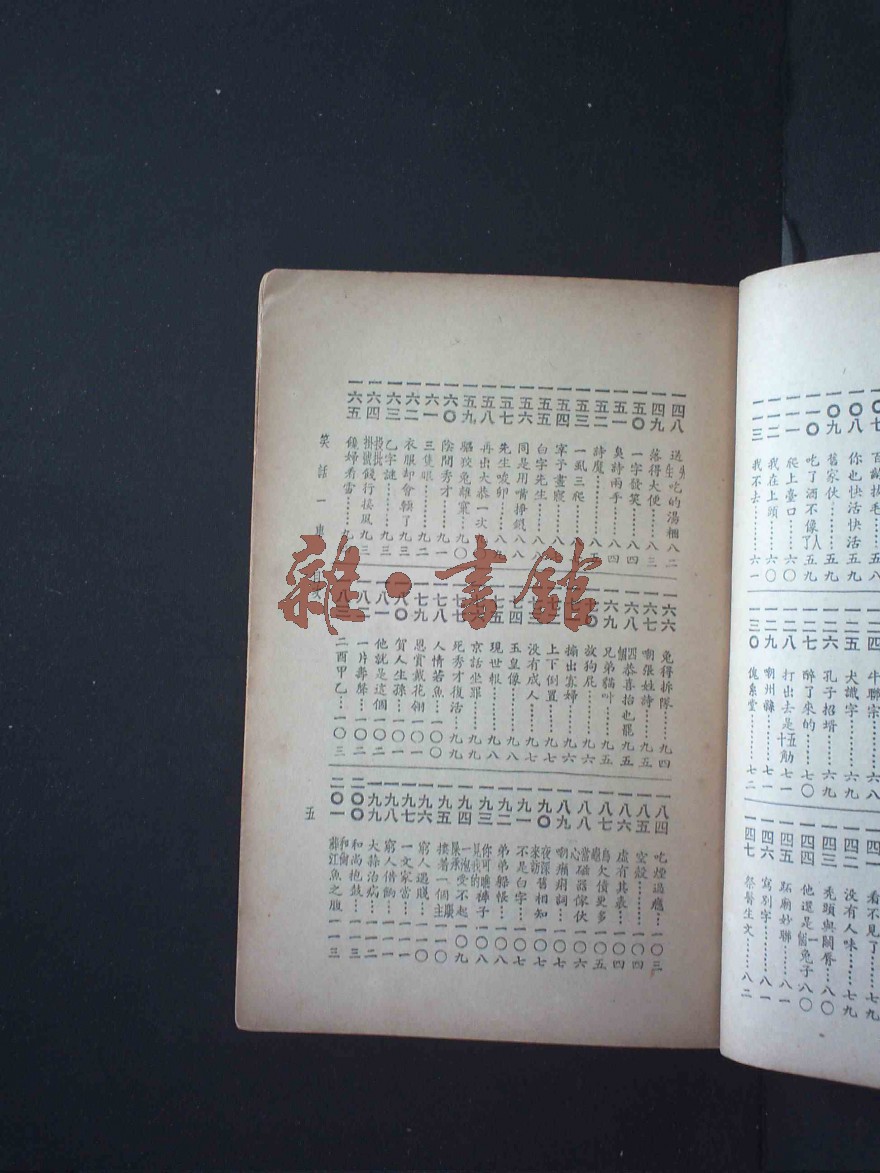 一〇八 你也快活快活……五九
一〇九 舊家伙……五九
一一〇 吃了酒不像了人五九
一一一 爬上臺口……六〇
一一二 我在上頭……六〇
一一三 我不去……六一
牛聯宗……六八
一二五 犬識字……六九
一二六 孔子招壻……六九
一二七 醉了來的……七〇
一二八 打出去是十五觔七一
一二九 嘲州縣……七一
一三〇 傀儡堂……七二
一四一 看不見了……七九
一四二 没有人味……七九
一四三 禿頭與關唇……八〇
一四四 他還是一個兔子八〇
一四五 跖廟妙聯……八一
一四六 寫別字……八一
一四七 祭醫生文……八二
一四八 送生吃的湯糰八二
一四九 落得大便……八三
一五〇 一字發笑……八四
一五一 臭詩兩手……八四
一五二 詩魔……八五
一五三 一虱三爬
一五四 宰予晝寢
一五五 白字先生……八八
一五六 同是用嘴掙錢八八
一五七 先生咬卵……八九
一五八 再出大恭一次
一五九 騷狡兔離窠九〇
一六〇 陰間秀才……九一
一六一 三隻眼……九二
一六二 衣服却會賴了九三
一六三 乙字謎……九三
一六四 投批掛號餞行接風九三
一六五 饞婦看雷……九
一六六 兔得拆隊……九四
一六七 嘲張姓詩……九五
一六八 四個恭喜抬也罷九五
一六九 兄弟貓叫……九五
一七〇 放狗屁……九六
搧出寡婦……九六
上下倒置……九七
没有成人……九七
七四 玉皇像……九八
七五 現世報……九八
京話坐罪……九九
死秀才復活……九九
一七八 人情若魚……一〇〇
一七九 恩賞戴花翎一〇一
一八〇 賀人生孫……一〇一
一八一 他就是這個一〇二
一片壽帶……一〇二
一八三 二酉甲乙……一〇三
一八四 吃煙過癮……一〇三
一八五 空殼……一〇四
一八六 虛有其表……一〇四
一八七 烏龜欠債更多一〇五
一八八 當心磁器傢伙一〇六
一八九 嘲痢痢詞……一〇七
一九〇 夜深舊相知來訪一〇七
一九一 不是白字……一〇七
一九二 弟弟躲帳……一〇八
一九三 你可瞧見我的褲子一〇八
一九四 一泡屎承受不起一〇九
一九五 摟著一個主一一〇
一九六 窮人遇賊……一一〇
一九七 一文家當……一一〇
一九八 窮人借餉……一一一
一九九 大操治病……一一二
二〇〇 和尚抱鼓……一一三
二〇一 江魚之腹一一三
笑話一車 目次
五
雜·書館